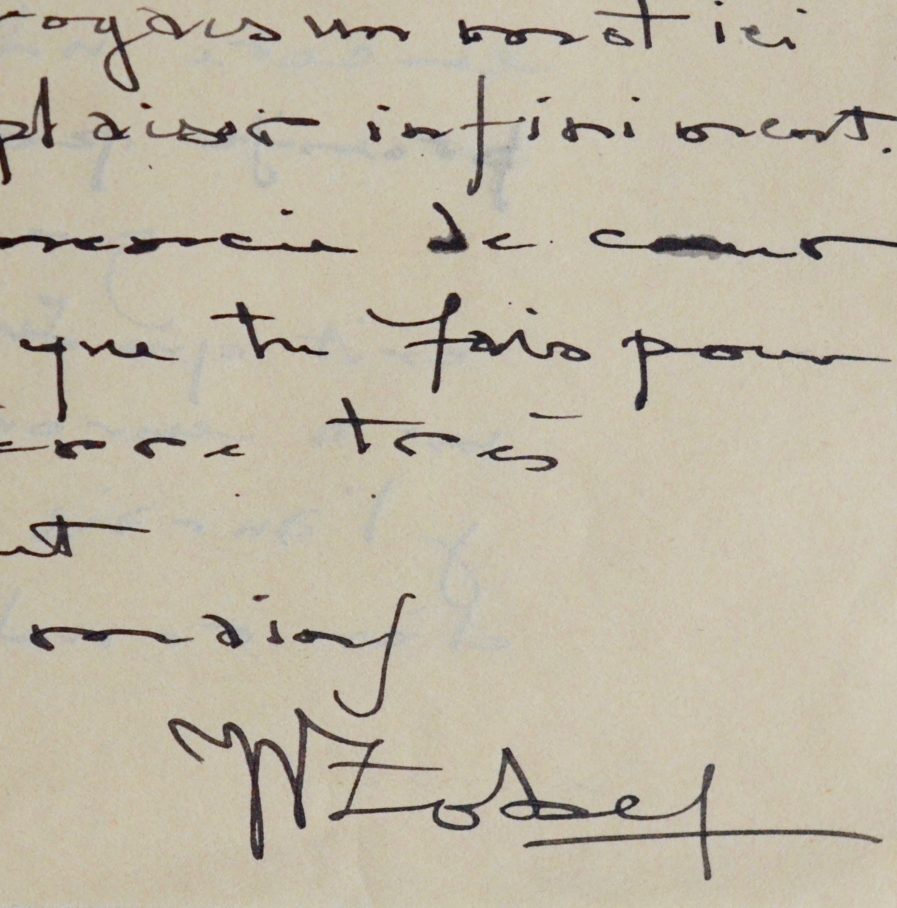 un mot ici
plaisir infiniment.
remercie de cœur
que tu fais pour
erre très
ut
Zobel